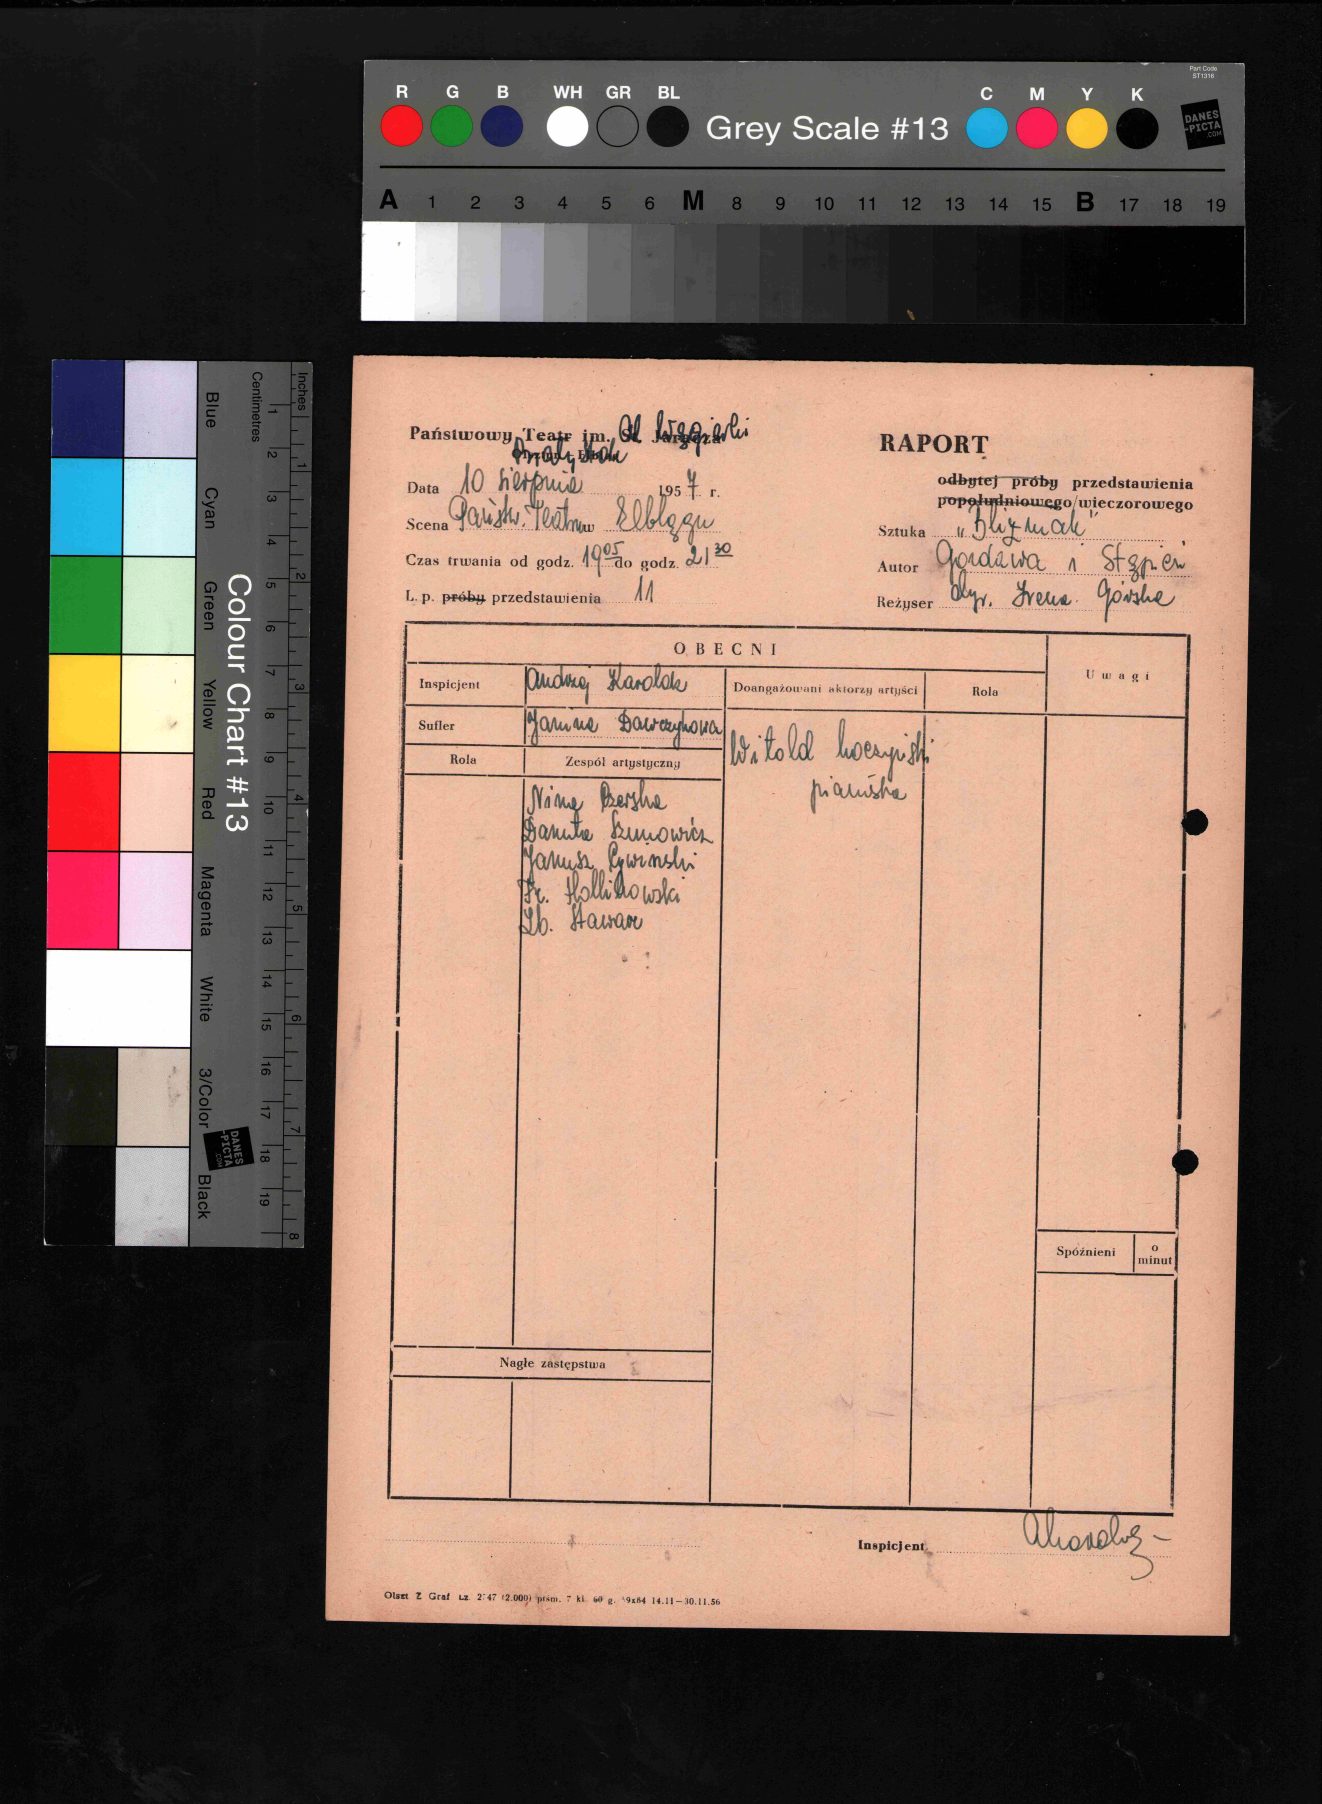 Part Code
ST1316
R G B WH GR BL
Grey Scale #13
C M Y K
DANES
-PICTA
.COM
A 1 2 3 4 5 6 M 8 9 10 11 12 13 14 15 B 17 18 19
Inches
Centimetres
1 2 3 4 5 6 7 8
1 2 3 4 5 6 7 8 9 10 11 12 13 14 15 16 17 18 19
Colour Chart #13
Blue
Cyan
Green
Yellow
Red
Magenta
White
3/Color
Black
DANES
-PICTA
.COM
Państwowy Teatr im. St. Jaracza Al. Węgierki
Białystok
RAPORT
odbytej próby przedstawienia
popołudniowego/wieczorowego
Data 10 sierpnia 1957 r.
Scena Państw. Teatru w Elblągu
Czas trwania od godz. 19 05 do godz. 21 30
L. p. próby przedstawienia 11
Sztuka „Bliźniak"
Autor Gozdawa i Stępień
Reżyser dyr. Irena Górska
OBECNI
Uwagi
Inspicjent Andrzej Karolak
Doangażowani aktorzy artyści
Rola
Sufler Janina Dawczykowa
Rola
Zespół artystyczny
Witold
pianista
Nina Czerska
Danuta Szumowicz
Janusz Cywiński
Fr. Hollikowski
Zb. Stawarz
Spóźnieni
o
minut
Nagłe zastępstwa
Inspicjent AKarolak
Olszt Z Graf Lz. 2747 (2.000) piśm. 7 kl. 60 g. 59x84 14.11—30.11.56